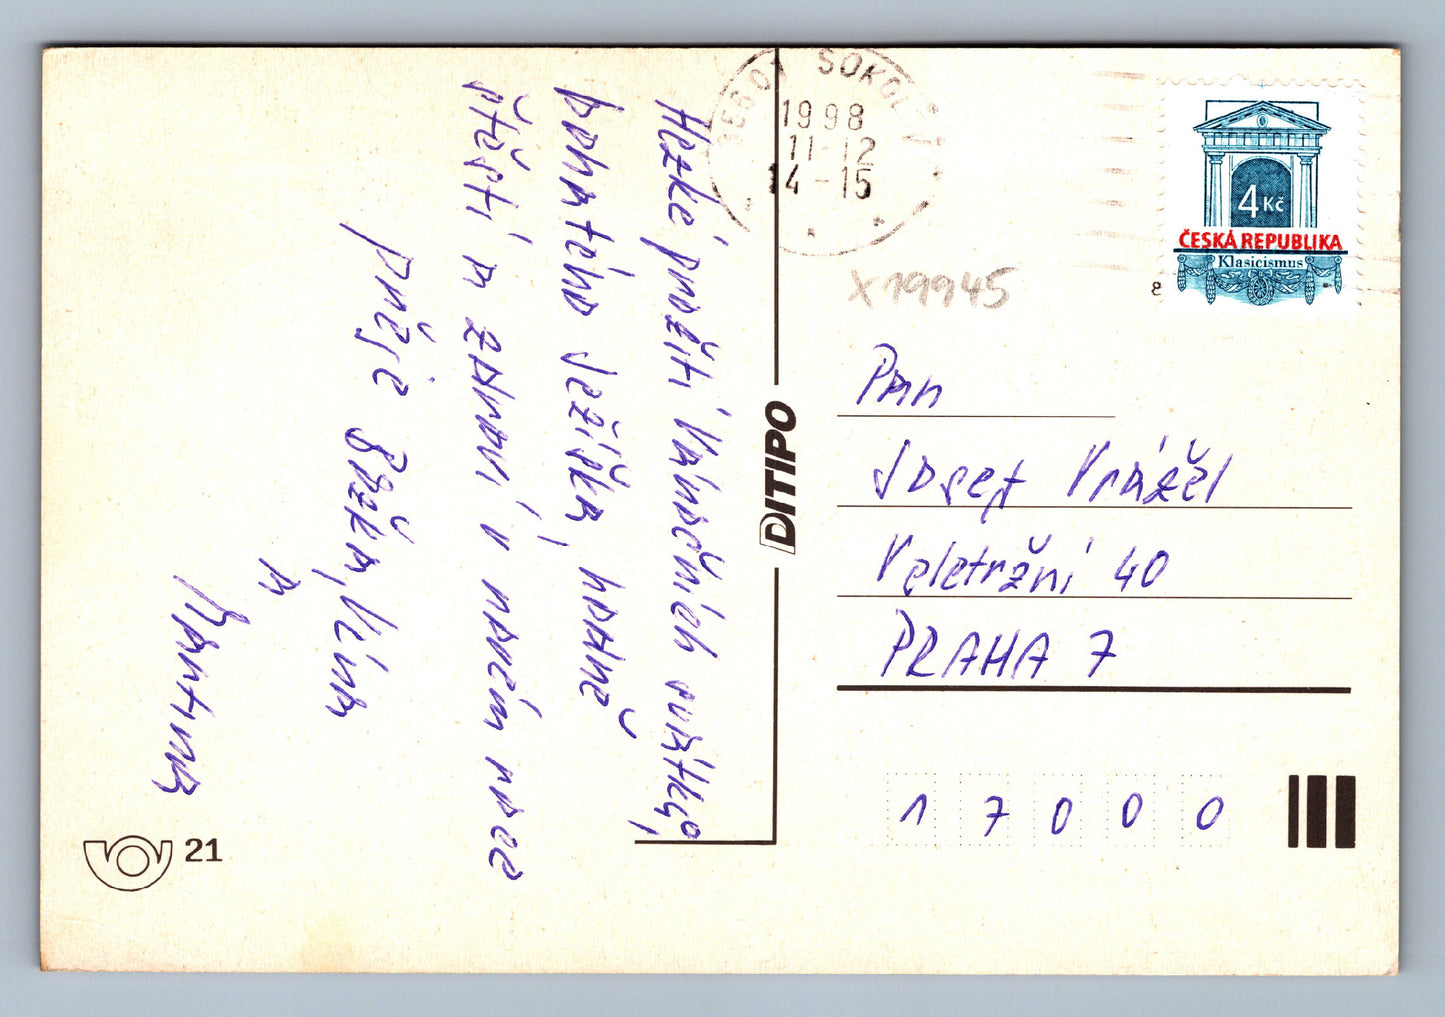 Hezké prožití Vánočních svátků,
bohatého Ježíška, hodně
štěstí a zdraví v novém roce
přeje Boženka, Věra
a
Martina
356 01 SOKOLOV 1
1998
11-12
14-15
4 Kč
ČESKÁ REPUBLIKA
Klasicismus
8
x19945
Pan
Josef
Veletržní 40
PRAHA 7
17000
DITIPO
21